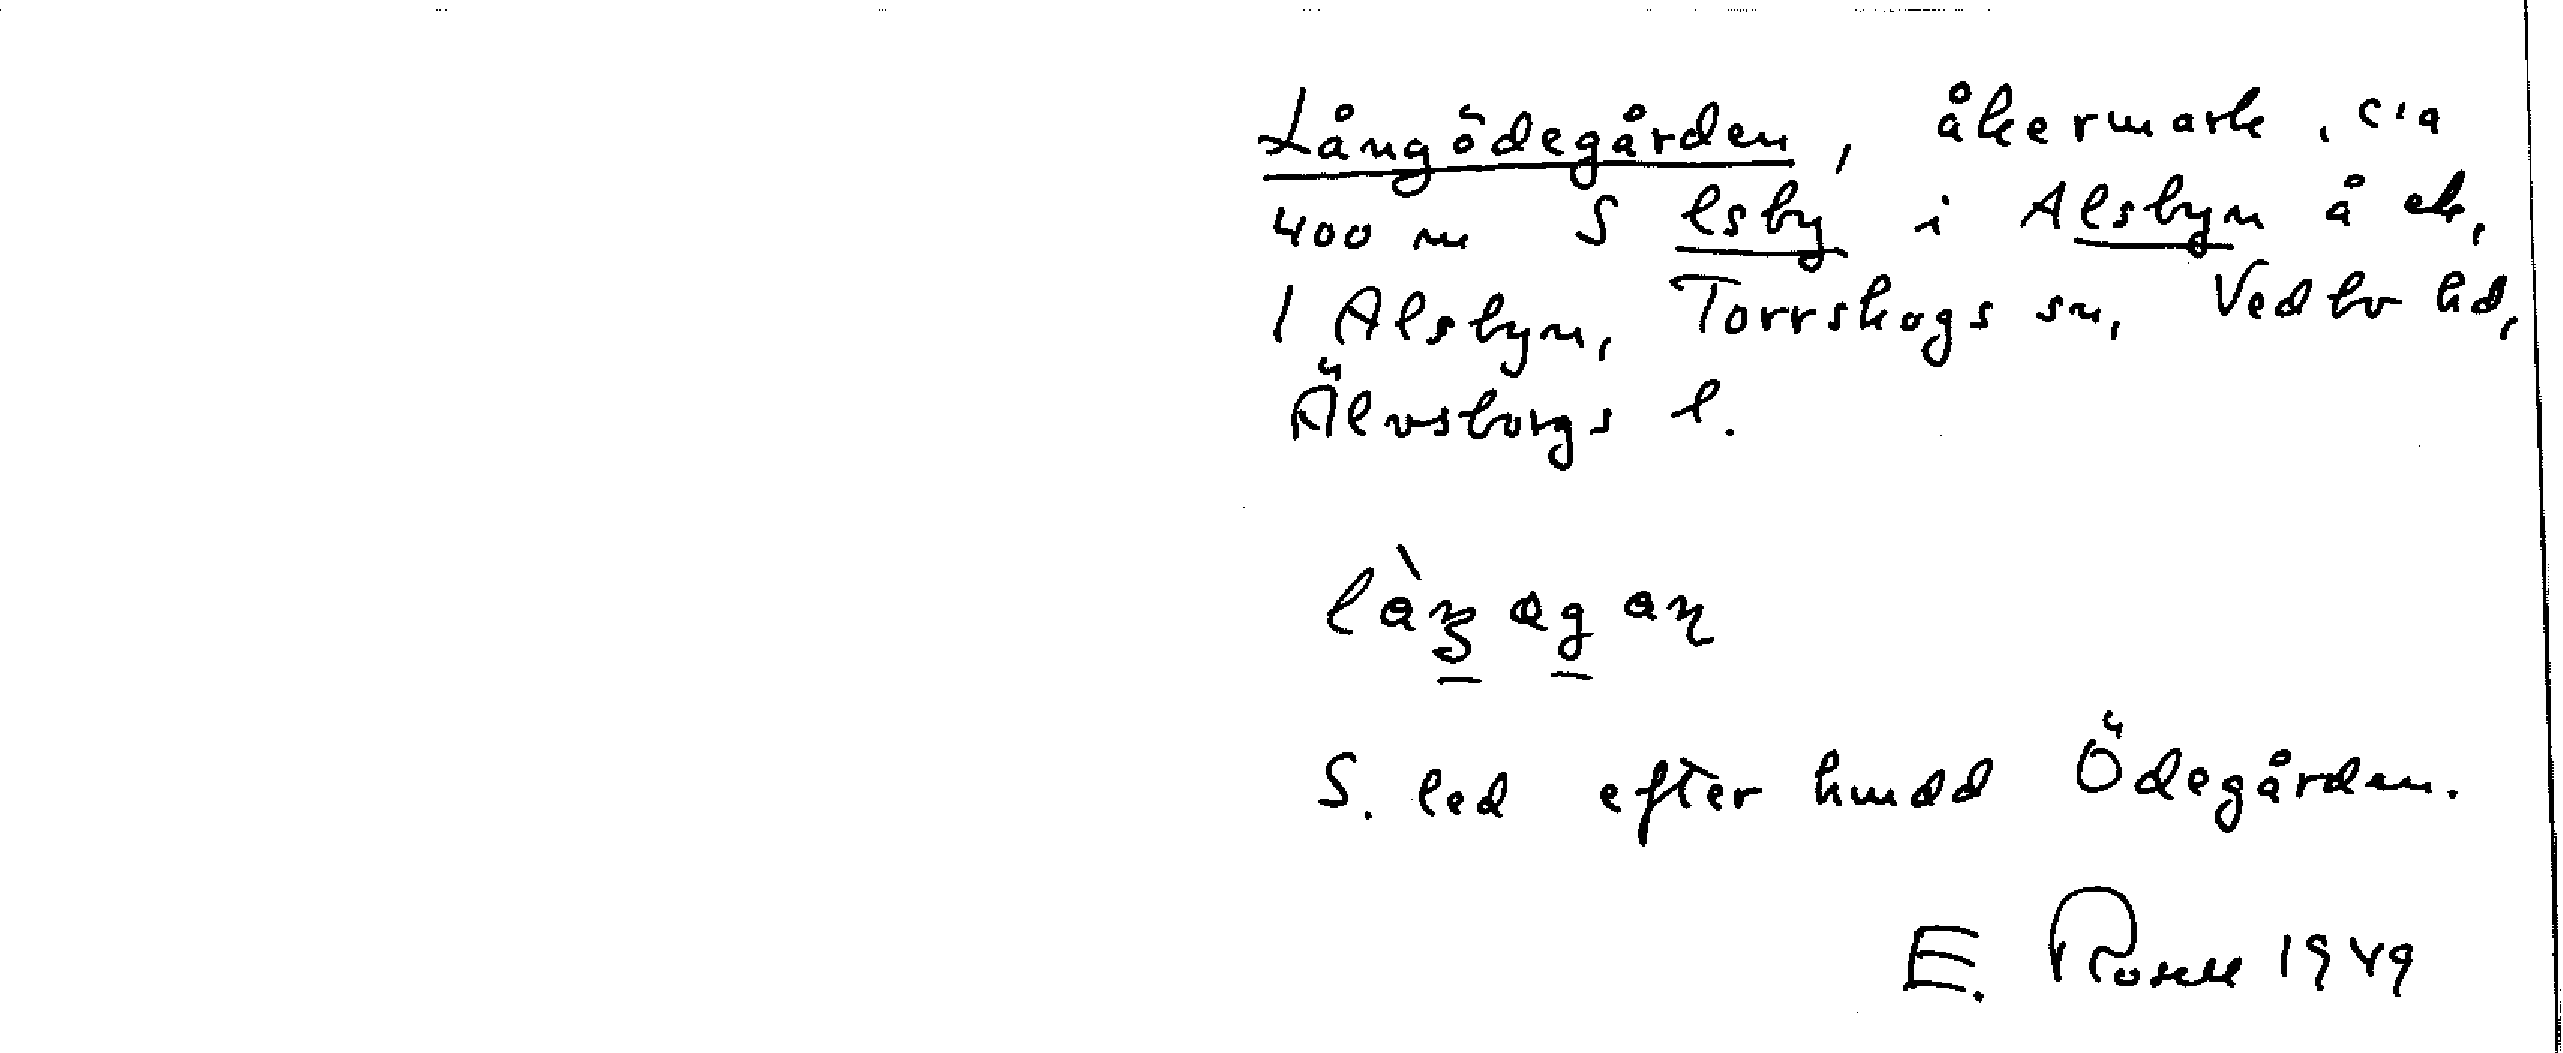 Långödegården, åkermark, c:a
400 m S lsby i Alsbyn å ek,
1 Alsbyn, Torrskogs sn, Vedbo hd,
Älvsborgs l.
S. led efter hmdd Ödegården.
E. Rosell 1949